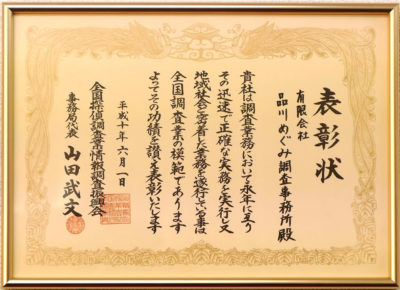 表彰状
有限会社
品川めぐみ調査事務所殿
貴社は調査業務において永年に亙り
その迅速で正確な実務を実行し又
地域社会に密着した業務を遂行している事は
全国調査業の模範であります
よってその功績を讃え表彰いたします
平成十年六月一日
全国探偵調査業情報調査振興会
事務局代表 山田武文